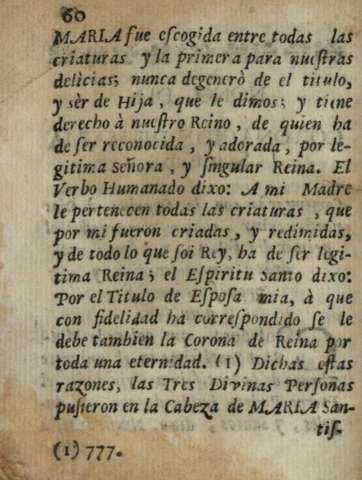 60
MARIA fue eſcogida entre todas las
criaturas y la primera para nueſtras
delicias; nunca degenerò de el titulo,
y sèr de Hija, que le dimos; y tiene
derecho à nueſtro Reino, de quien ha
de ſer reconocida, y adorada, por le-
gitima Señora, y ſingular Reina. El
Verbo Humanado dixo: A mi Madre
le pertenecen todas las criaturas, que
por mi fueron criadas, y redimidas,
y de todo lo que ſoi Rey, ha de ſer legi-
tima Reina; el Eſpiritu Santo dixo:
Por el Titulo de Eſpoſa mia, à que
con fidelidad ha correſpondido ſe le
debe tambien la Corona de Reina por
toda una eternidad. (1) Dichas eſtas
razones, las Tres Divinas Perſonas
puſieron en la Cabeza de MARIA San-
tiſ-
(1) 777.